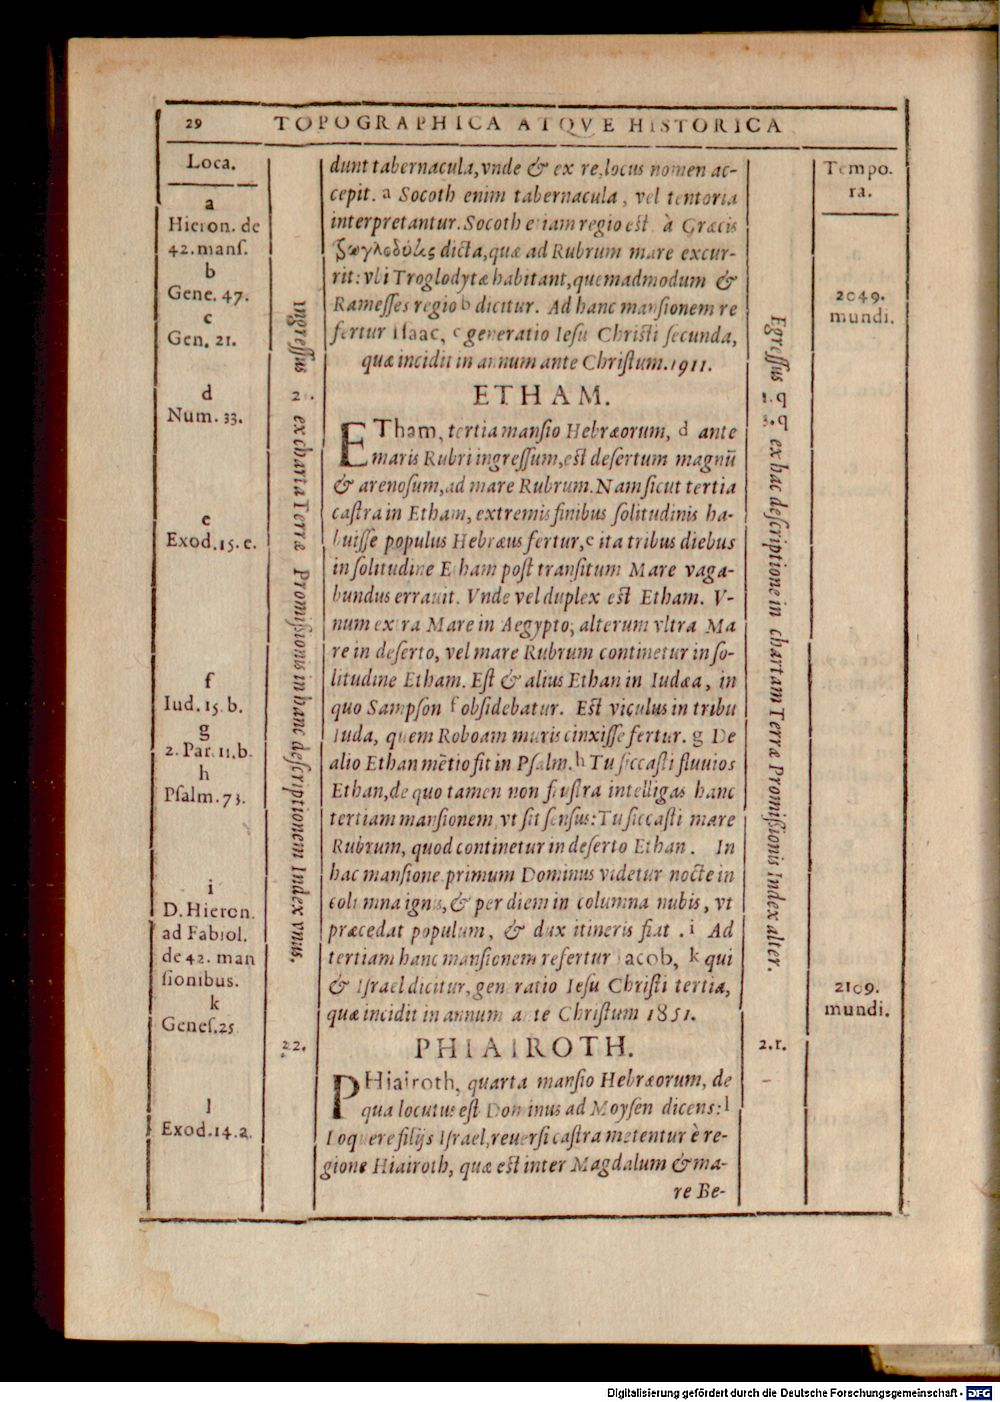 29 TOPOGRAPHICA ATQVE HISTORICA
Loca.
a
Hieron. de
42. manſ.
b
Gene. 47.
c
Gen. 21.
d
Num. 33.
e
Exod. 15. c.
f
Iud. 15. b.
g
2. Par. 11. b.
h
Pſalm. 73.
i
D. Hieron.
ad Fabiol.
de 42. man
ſionibus.
k
Geneſ. 25
l
Exod. 14. a.
Ingreſſus ex charta Terræ Promiſſionis in hanc deſcriptionem Index vnus.
22.
dunt tabernacula, vnde & ex re, locus nomen ac-
cepit. a Socoth enim tabernacula, vel tentoria
interpretantur. Socoth etiam regio est à Græcis
dicta, quæ ad Rubrum mare excur-
rit: vbi Troglodytæ habitant, quemadmodum &
Rameſſes regio b dicitur. Ad hanc manſionem re
fertur Iſaac, c generatio Ieſu Chriſti ſecunda,
quæ incidit in annum ante Chriſtum. 1911.
ETHAM.
ETham, tertia manſio Hebræorum, d ante
maris Rubri ingreſſum, est deſertum magnū
& arenoſum, ad mare Rubrum. Nam ſicut tertia
caſtra in Etham, extremis finibus ſolitudinis ha-
buiſſe populus Hebræus fertur, e ita tribus diebus
in ſolitudine Etham poſt tranſitum Mare vaga-
bundus errauit. Vnde vel duplex est Etham. V-
num extra Mare in Aegypto, alterum vltra Ma
re in deſerto, vel mare Rubrum continetur in ſo-
litudine Etham. Est & alius Ethan in Iudæa, in
quo Sampſon f obſidebatur. Est viculus in tribu
Iuda, quem Roboam muris cinxiſſe fertur. g De
alio Ethan mētio fit in Pſalm. h Tu ſiccaſti fluuios
Ethan, de quo tamen non fruſtra intelligas hanc
tertiam manſionem, vt ſit ſenſus: Tu ſiccaſti mare
Rubrum, quod continetur in deſerto Ethan. In
hac manſione primum Dominus videtur nocte in
columna ignis, & per diem in columna nubis, vt
præcedat populum, & dux itineris fiat. i Ad
tertiam hanc manſionem refertur Iacob, k qui
& Iſrael dicitur, generatio Ieſu Chriſti tertia,
quæ incidit in annum ante Chriſtum 1851.
PHIAIROTH.
PHiairoth, quarta manſio Hebræorum, de
qua locutus est Dominus ad Moyſen dicens: l
Loquere filijs Iſrael, reuerſi caſtra metentur è re-
gione Hiairoth, quæ est inter Magdalum & ma-
re Be-
Egreſſus ex hac deſcriptione in chartam Terræ Promiſſionis Index alter.
1. q
3. q
2. r.
Tempo.
ra.
2049.
mundi.
2109.
mundi.
Digitalisierung gefördert durch die Deutsche Forschungsgemeinschaft - DFG